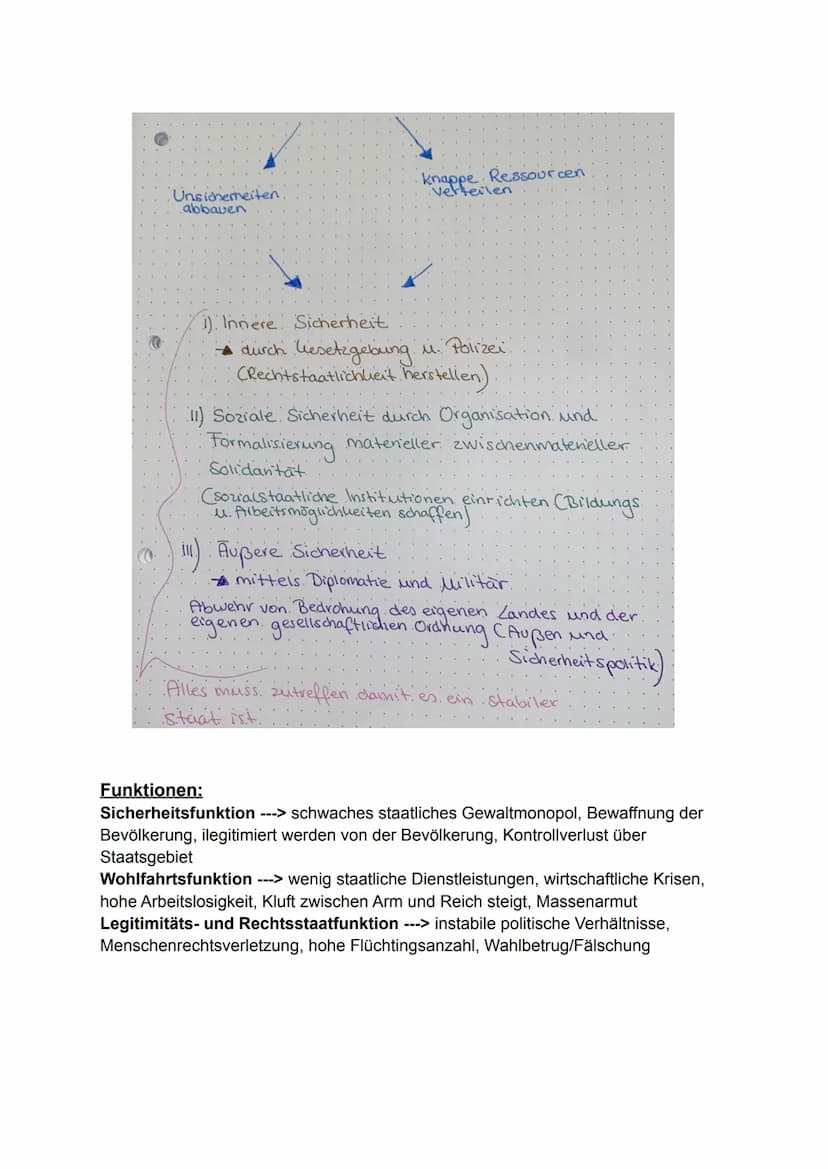 Unsicherheiten
abbauen
Knappe Ressourcen
verteilen
I) Innere Sicherheit
durch Gesetzgebung u. Polizei
(Rechtstaatlichkeit herstellen)
II) Soziale Sicherheit durch Organisation und
Formalisierung materieller zwischenmaterieller
Solidarität
(sozialstaatliche Institutionen einrichten (Bildungs
u. Arbeitsmöglichkeiten schaffen)
III) Äußere Sicherheit
mittels Diplomatie und Militär
Abwehr von Bedrohung des eigenen Landes und der
eigenen gesellschaftlichen Ordnung (Außen und
Sicherheitspolitik)
Alles muss zutreffen damit es ein stabiler
Staat ist.
Funktionen:
Sicherheitsfunktion ---> schwaches staatliches Gewaltmonopol, Bewaffnung der
Bevölkerung, ilegitimiert werden von der Bevölkerung, Kontrollverlust über
Staatsgebiet
Wohlfahrtsfunktion ---> wenig staatliche Dienstleistungen, wirtschaftliche Krisen,
hohe Arbeitslosigkeit, Kluft zwischen Arm und Reich steigt, Massenarmut
Legitimitäts- und Rechtsstaatfunktion ---> instabile politische Verhältnisse,
Menschenrechtsverletzung, hohe Flüchtingsanzahl, Wahlbetrug/Fälschung